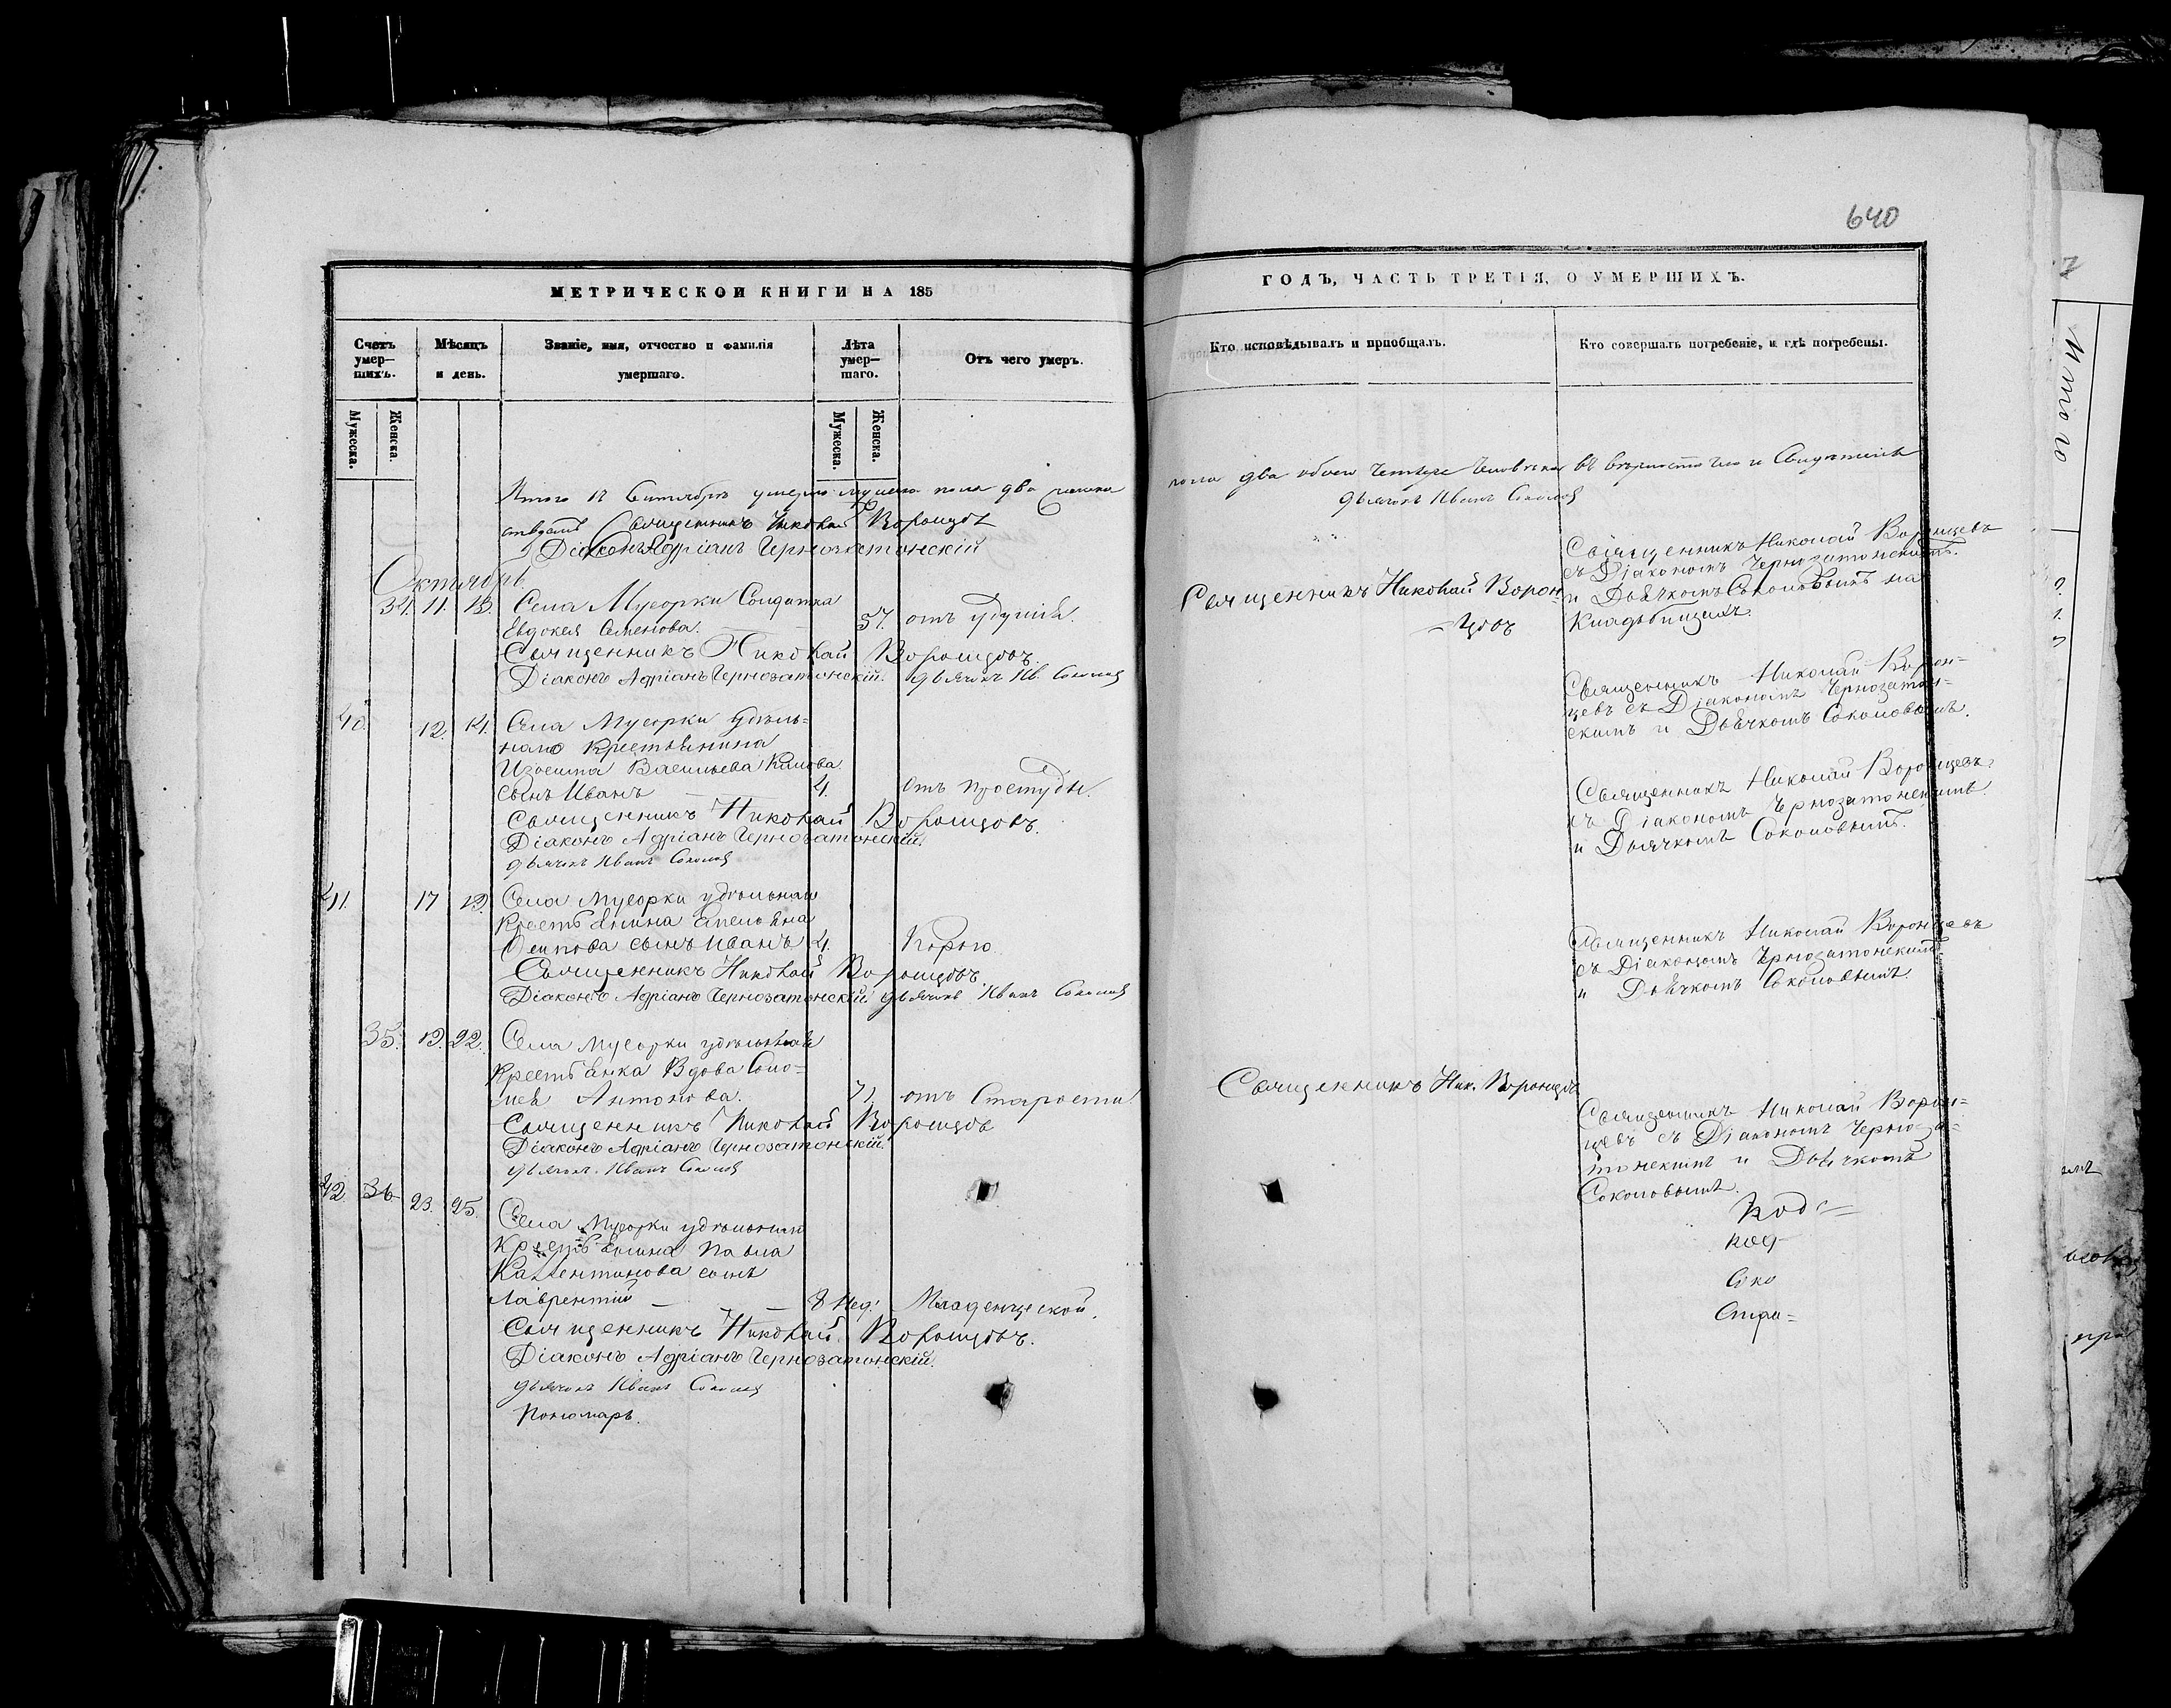 640
МЕТРИЧЕСКОЙ КНИГИ НА 185
ГОДЪ, ЧАСТЬ ТРЕТІЯ, О УМЕРШИХЪ.
Счетъ умер-шихъ.
Мѣсяцъ и день.
Званіе, имя, отчество и фамилія умершаго.
Лѣта умер-шаго.
Отъ чего умеръ.
Кто исповѣдывалъ и пріобщалъ.
Кто совершалъ погребеніе, и гдѣ погребены.
Мужеска.
Женска.
Мужеска.
Женска.
Итого въ Сентябрѣ умерло мужеска пола два женска
пола два обоего четыре человѣка въ вѣрности чего и Свидѣтельс
твуемъ Священникъ Николай Воронцовъ
дьячокъ Иванъ Соколов
Діаконъ Адріанъ Чернозатонскій
Октябрь
34. 11. 13. Села Мусорки Солдатка
Евдокея Семенова. 57. отъ удушія.
Священникъ Николай Воронцовъ.
Діаконъ Адріанъ Чернозатонскій. дьячокъ Ив. Соколов
Священникъ Николай Ворон=
=цовъ
Священникъ Николай Воронцевъ
съ Діакономъ Чернозатонскимъ.
и Дьячкомъ Соколовымъ на
Кладьбищахъ
40. 12. 14. Села Мусорки Удѣль=
наго Крестьянина
Васильева
сынъ Иванъ 4. отъ простуды.
Священникъ Николай Воронцовъ.
Діаконъ Адріанъ Чернозатонскій.
дьячокъ Иванъ Соколов
Священникъ Николай Ворон=
цевъ съ Діакономъ Чернозатон=
скимъ и Дьячкомъ Соколовымъ.
41. 17 19. Села Мусорки удѣльнаго
Крестьянина Емельяна
Осипова сынъ Иванъ 4.
Священникъ Николай Воронцовъ.
Діаконъ Адріанъ Чернозатонскій дьячокъ Иванъ Соколов
Священникъ Николай Воронцевъ
съ Діакономъ Чернозатонскимъ
и Дьячкомъ Соколовымъ.
35. 19. 22. Села Мусорки удѣльная
Крестьянка Вдова Соло=
мея Антонова. 71. отъ Старости
Священникъ Николай Воронцовъ
Діаконъ Адріанъ Чернозатонскій.
дьячокъ Иванъ Соколов
Священникъ Ник. Воронцовъ
Священникъ Николай Воронцевъ
съ Діакономъ Чернозатонскимъ
и Дьячкомъ Соколовымъ.
42. 36 23. 25. Села Мусорки удѣльнаго
Крестьянина Павла
сынъ
Лаврентій 8 Нед: Младенческой.
Священникъ Николай Воронцовъ.
Діаконъ Адріанъ Чернозатонскій.
дьячокъ Иванъ Соколов
Пономарь.
Священникъ Николай Ворон=
цевъ съ Діакономъ Черноза=
тонскимъ и Дьячкомъ
Соколовымъ.
Итого